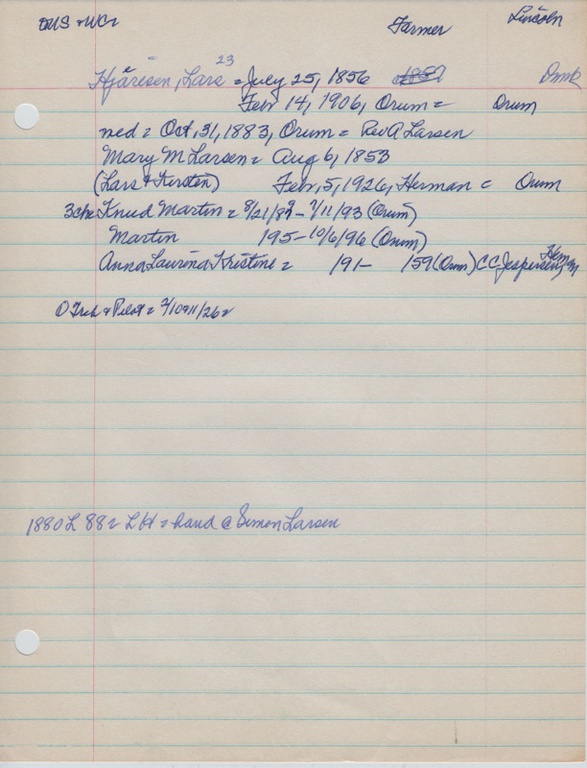 OHS & WC= Farmer Lincoln
23
Hjåresen, Lars = July 25, 1856 1857 Dmk
Febr 14, 1906, Orum = Orum
med = Oct, 31, 1883, Orum = Rev A Larsen
Mary M Larsen = Aug 6, 1853
(Lars & Kirsten) Febr, 5, 1926, Herman = Orum
3ch= Knud Martin = 8/21/89 - 7/11/93 (Orum)
Martin 195 - 10/6/96 (Orum)
Anna Laurina Kristine = 191 - 159 (Orum) CC Jespersen, Herman
D Trib & Pilot = 2/10&11/26=
1880 L 88= L H = hand @ Simon Larsen